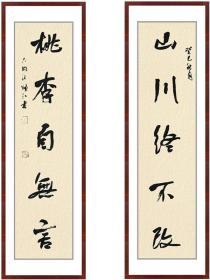 山川終不改
桃李自無言